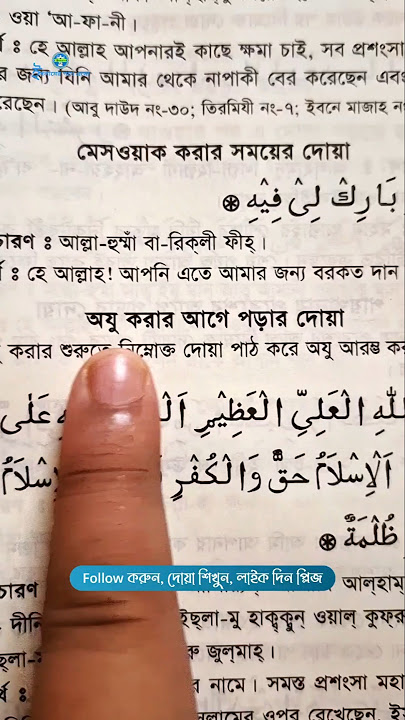 ওয়া 'আ-ফা-নী।
র্থ : হে আল্লাহ আপনারই কাছে ক্ষমা চাই, সব প্রশংসা
র জন্য যিনি আমার থেকে নাপাকী বের করেছেন এবং
রেছেন। (আবু দাউদ নং-৩০; তিরমিযী নং-৭; ইবনে মাজাহ নং
মেসওয়াক করার সময়ের দোয়া
بَارِكْ لِىْ فِيْهِ
চারণ : আল্লা-হুম্মা বা-রিকলী ফীহ্।
র্থ : হে আল্লাহ! আপনি এতে আমার জন্য বরকত দান
অযু করার আগে পড়ার দোয়া
করার শুরুতে নিম্নোক্ত দোয়া পাঠ করে অযু আরম্ভ কর
للهِ الْعَلِىِّ الْعَظِيْمِ عَلٰى
اَلْاِسْلَامُ حَقٌّ وَالْكُفْرُ
ظُلْمَةٌ
Follow করুন, দোয়া শিখুন, লাইক দিন প্লিজ
চারণ আল্হাম্
দীনি ইছ্লা-মু হাক্বক্বুন্ ওয়াল্ কুফ্রু
ছ্লা- জুল্মাহ্।
র্থ : র নামে। সমস্ত প্রশংসা মহা
লামের ওপর রেখেছেন,